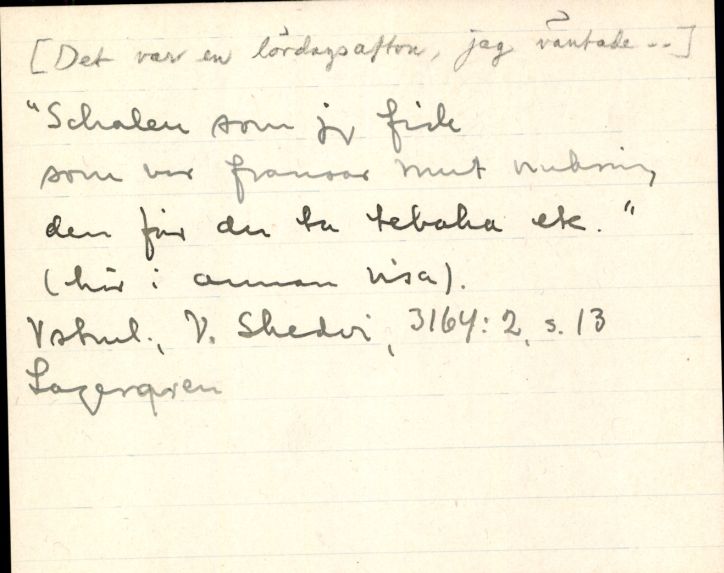 [Det var en lördagsafton, jag väntade --]
"Schalen som jy fick
som var fransar runt
den får du ta tebaka etc."
(här i annan visa).
Vstml., V. Skedvi, 3164:2, s. 13
Lagergren